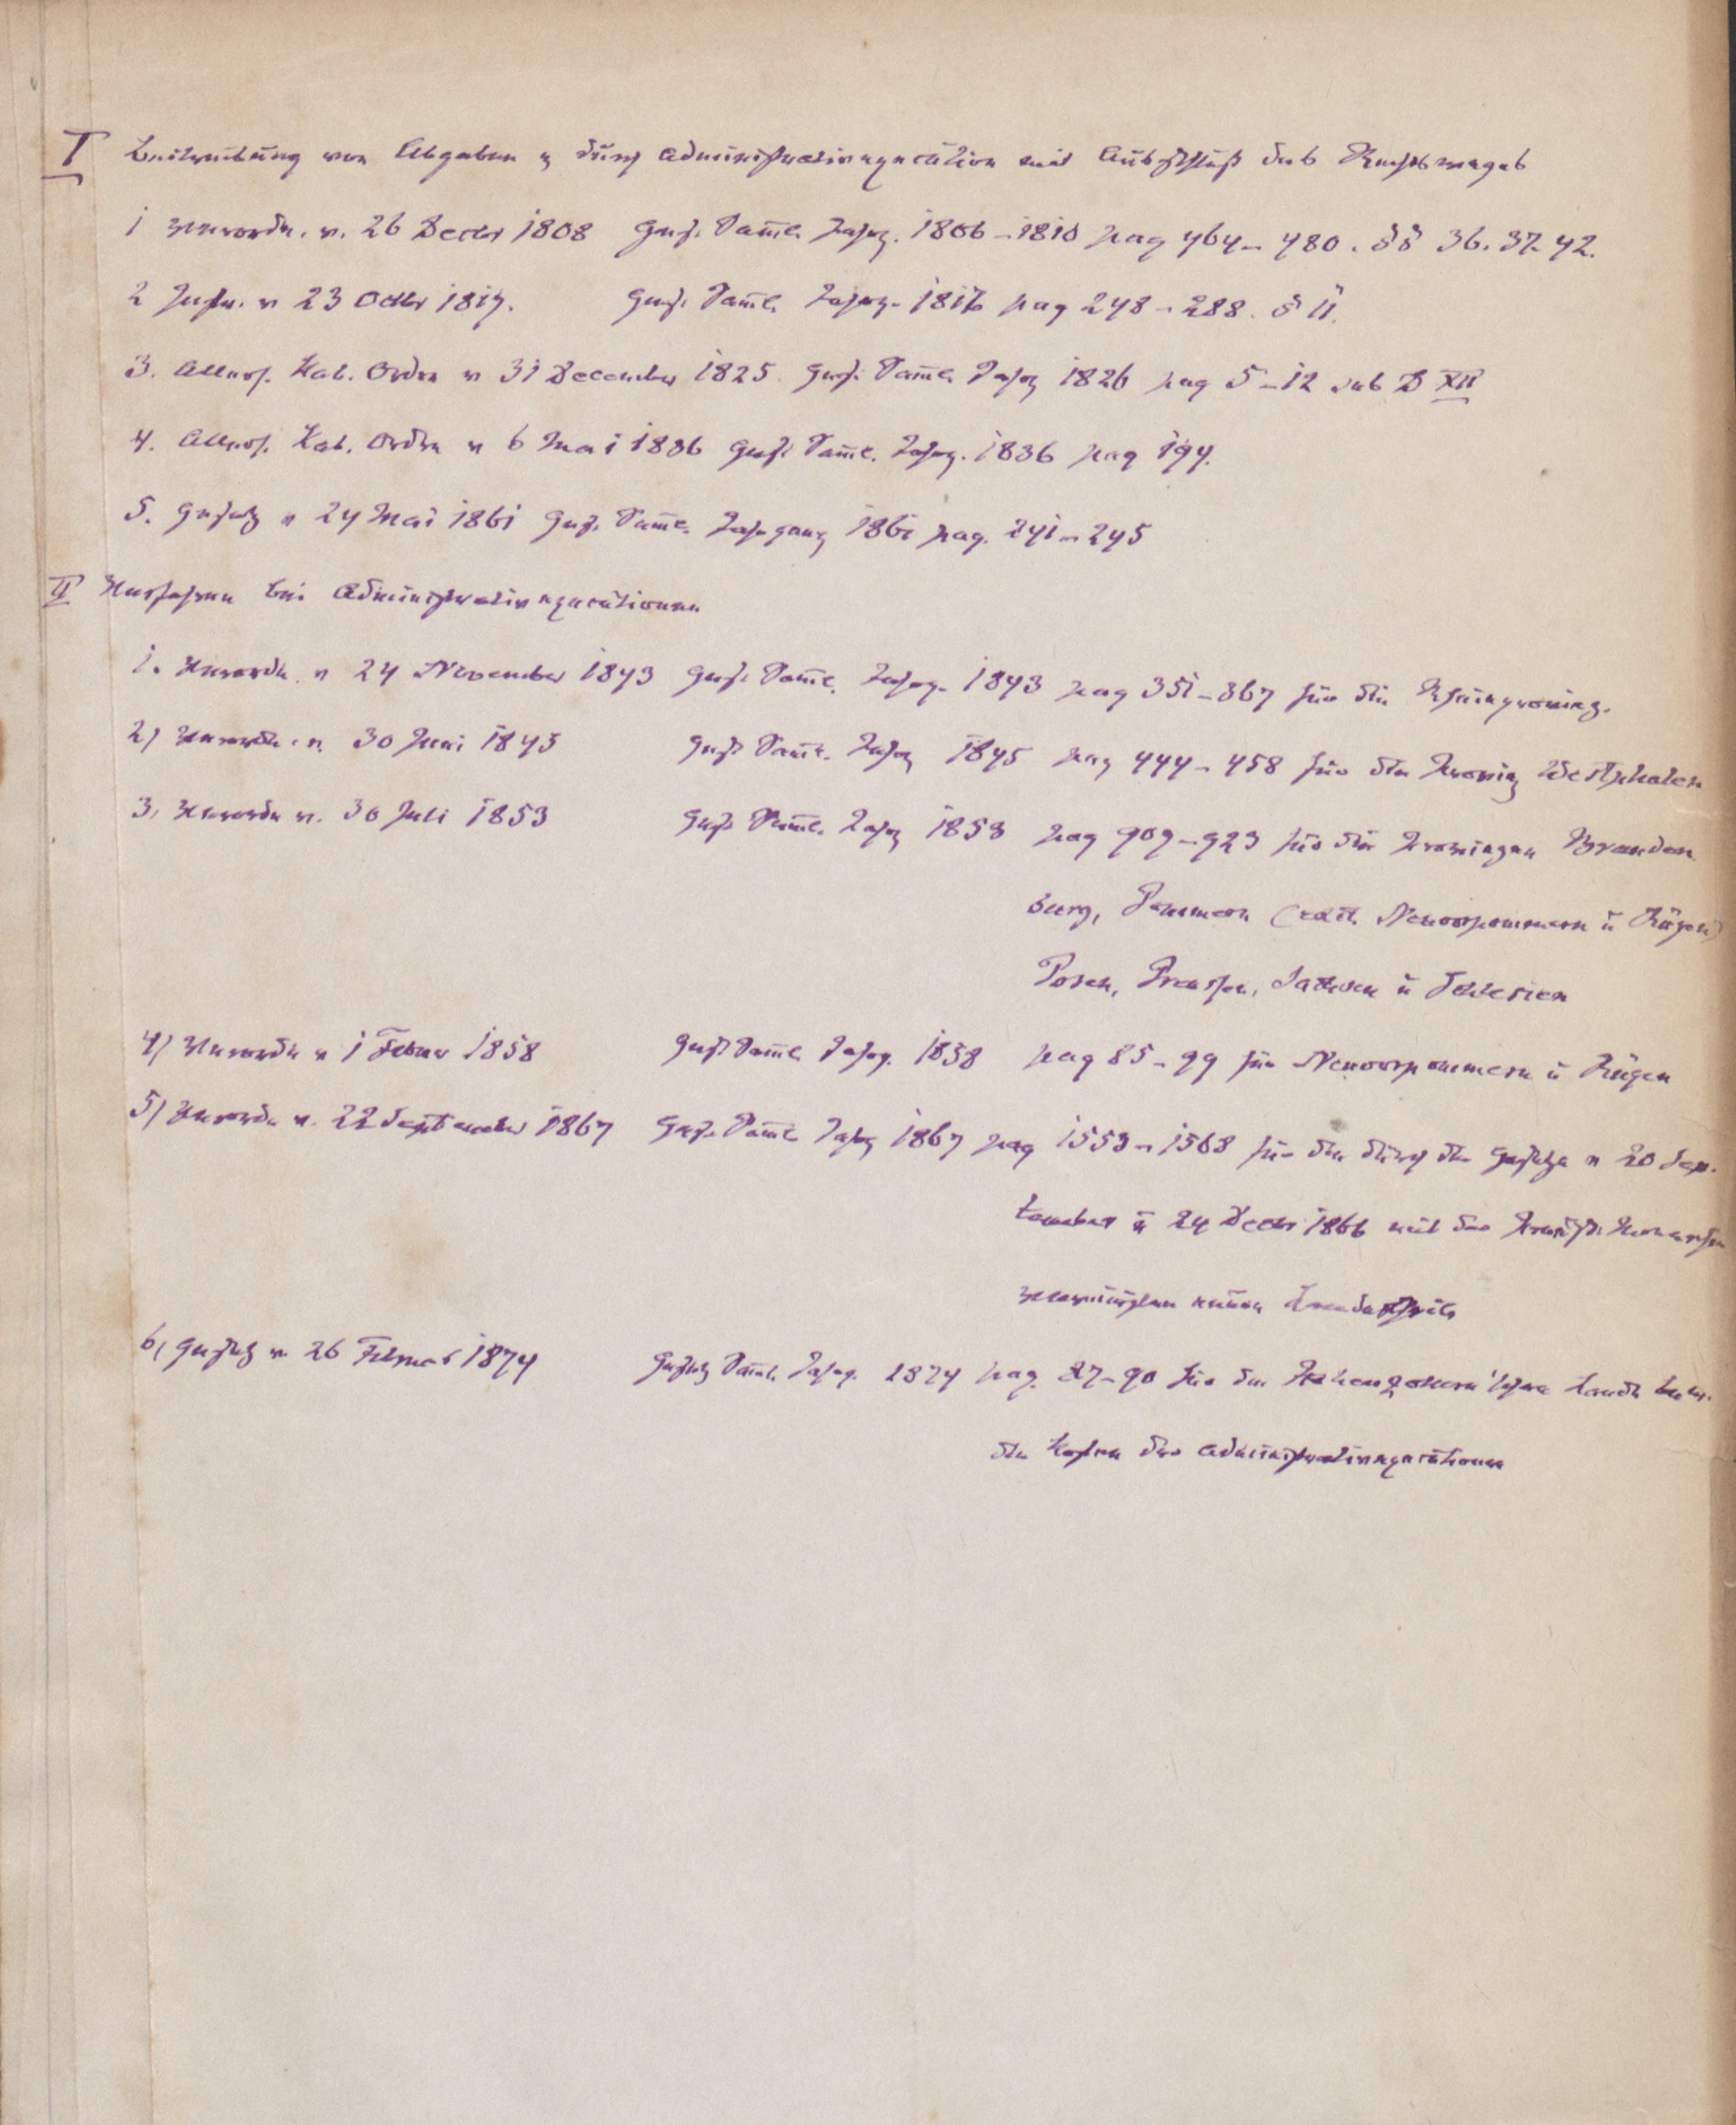 I Beitreibung von Abgaben p durch Administrativexecution mit Ausschluß des Rechtsweges
1 Verordn. v. 26 Decbr 1808 Ges. Saml. Jahrg. 1806–1810 pag 464–480. §§ 36. 37. 42.
2 Instr. v 23 Octbr 1817. Ges. Saml. Jahrg. 1817 pag 248–288. § 11.
3. Allerh. Kab. Ordre v 31 December 1825. Ges. Saml. Jahrg 1826 pag 5–12 sub D XII
4. Allerh. Kab. Ordre v 6 Mai 1836 Ges. Saml. Jahrg. 1836 pag 194.
5. Gesetz v 24 Mai 1861 Ges. Saml. Jahrgang 1861 pag. 241–245
II Verfahren bei Administrativexecutionen
1. Verordn. v 24 November 1843 Ges. Saml. Jahrg. 1843 pag 351–367 für die Rheinprovinz.
2) Verordn. v. 30 Juni 1845 Ges. Saml. Jahrg 1845 pag 444–458 für die Provinz Westphalen
3, Verordn v. 30 Juli 1853 Ges. Saml. Jahrg 1853 pag 909–923 für die Provinzen Branden
burg, Pommern (excl. Neuvorpommern u Rügen)
Posen, Preußen, Sachsen u Schlesien
4) Verordn v 1 Februar 1858 Ges. Saml. Jahrg. 1858 pag 85–99 für Neuvorpommern u Rügen
5) Verordn v. 22 September 1867 Ges. Saml. Jahrg 1867 pag 1553–1568 für die durch die Gesetze v 20 Sep.
tember u 24 Decbr 1866 mit der Preuß. Monarchie
vereinigten neuen Landestheile
6, Gesetz v. 26 Februar 1874 Gesetz Saml. Jahrg. 1874 pag. 87–90 für die Hohenzollern'schen Lande betr.
die Kosten der Administrativexecutionen